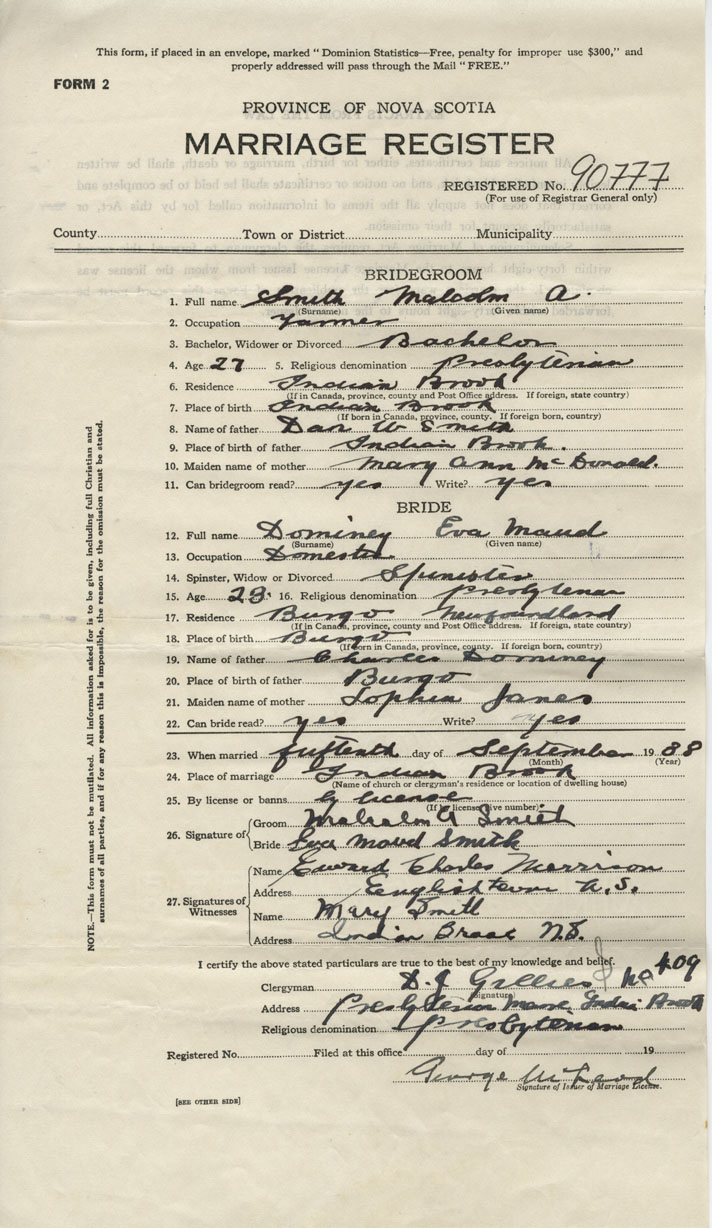 This form, if placed in an envelope, marked "Dominion Statistics—Free, penalty for improper use $300," and
properly addressed will pass through the Mail "FREE."
FORM 2
PROVINCE OF NOVA SCOTIA
MARRIAGE REGISTER
REGISTERED No. 90777
(For use of Registrar General only)
County Town or District Municipality
BRIDEGROOM
1. Full name Smith Malcolm A.
(Surname) (Given name)
2. Occupation Farmer
3. Bachelor, Widower or Divorced Bachelor
4. Age 27 5. Religious denomination Presbyterian
6. Residence Indian Brook
(If in Canada, province, county and Post Office address. If foreign, state country)
7. Place of birth Indian Brook
(If born in Canada, province, county. If foreign born, country)
8. Name of father Dan W Smith
9. Place of birth of father Indian Brook.
10. Maiden name of mother Mary Ann McDonald.
11. Can bridegroom read? yes Write? yes
BRIDE
12. Full name Dominey Eva Maud
(Surname) (Given name)
13. Occupation Domestic
14. Spinster, Widow or Divorced Spinster
15. Age 23. 16. Religious denomination Presbyterian
17. Residence Burgo Newfoundland
(If in Canada, province, county and Post Office address. If foreign, state country)
18. Place of birth Burgo
(If born in Canada, province, county. If foreign born, country)
19. Name of father Charles Dominey
20. Place of birth of father Burgo
21. Maiden name of mother Sophia Janes
22. Can bride read? yes Write? yes
23. When married fifteenth day of September 1938
(Month) (Year)
24. Place of marriage Indian Brook
(Name of church or clergyman's residence or location of dwelling house)
25. By license or banns by license
(If by license give number)
26. Signature of Groom Malcolm A Smith
Bride Eva Maud Smith
27. Signatures of Witnesses Name Edward Charles Morrison
Address Englishtown N.S.
Name Mary Smith
Address Indian Brook N.S.
I certify the above stated particulars are true to the best of my knowledge and belief.
Clergyman D.J Gillies No 409
(Signature)
Address Presbyterian Manse, Indian Brook
Religious denomination Presbyterian
Registered No. Filed at this office day of 19
George McLeod
Signature of Issuer of Marriage License.
[SEE OTHER SIDE]
NOTE.—This form must not be mutilated. All information asked for is to be given, including full Christian and
surnames of all parties, and if for any reason this is impossible, the reason for the omission must be stated.